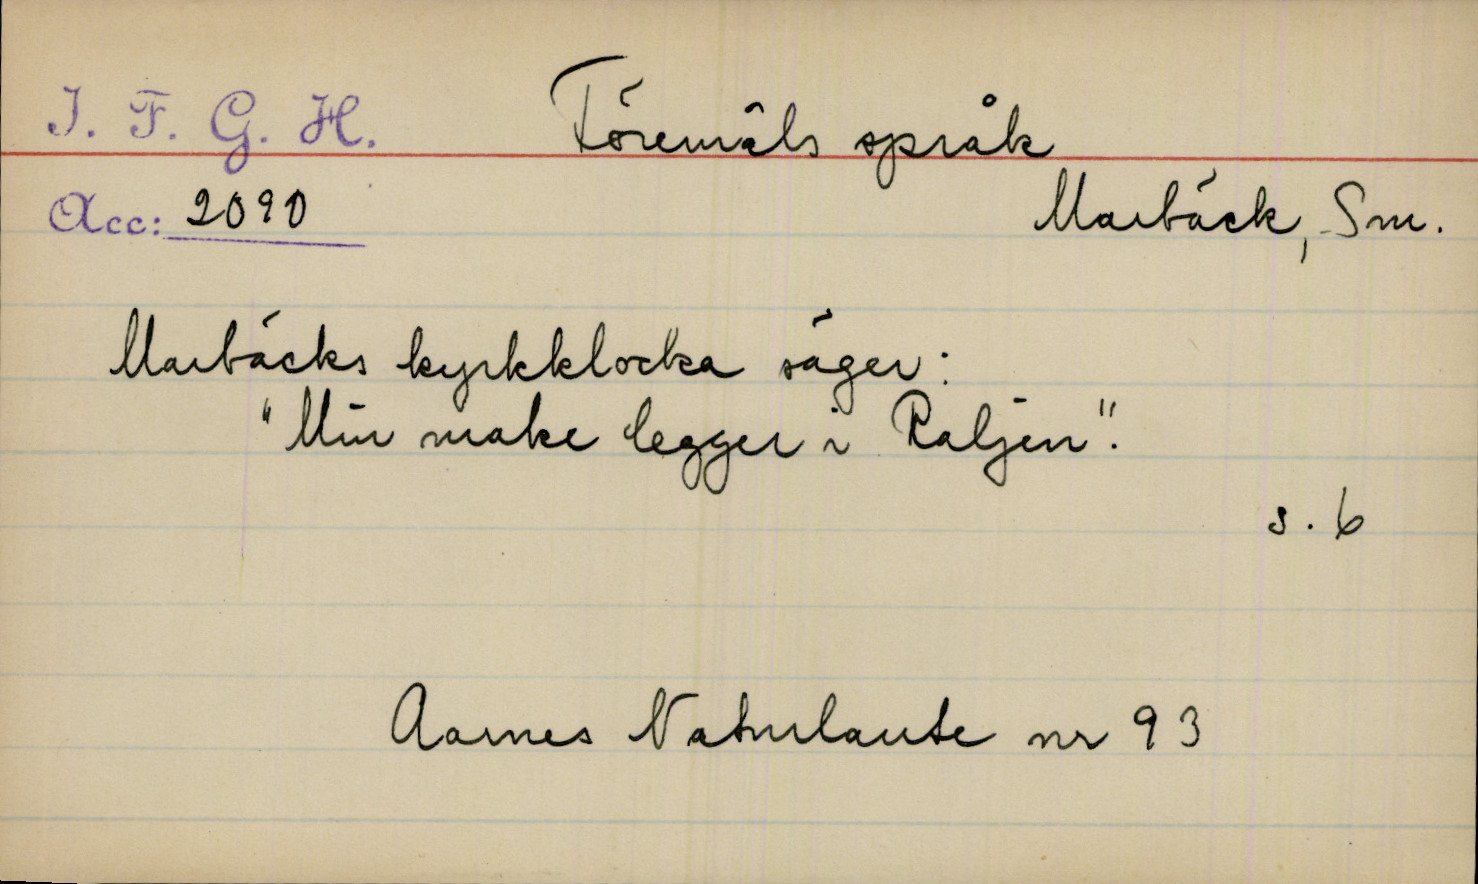 I. F. G. H.
Föremåls språk
Acc: 2090
Marbäck, Sm.
Marbäcks kyrkklocka säger:
"Min make legger i Raljen".
s. 6
Aarnes Naturlaute nr 93